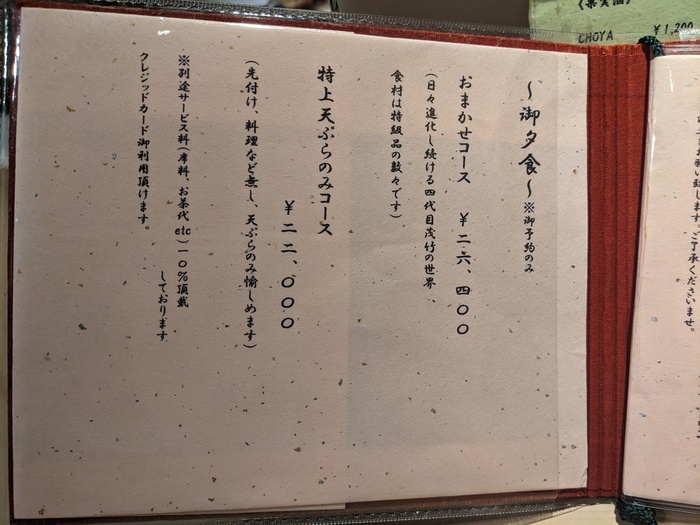 (果実酒)
CHOYA ¥1,200
～御夕食～ ※御予約のみ
おまかせコース ¥二六、四〇〇
(日々進化し続ける四代目茂竹の世界、
食材は特級品の数々です)
特上天ぷらのみコース
¥二二、〇〇〇
(先付け、料理など無し、天ぷらのみ愉しめます)
※別途サービス料(席料、お茶代etc)一〇%頂戴
しております
クレジッドカード御利用頂けます。
ご了承くださいませ。